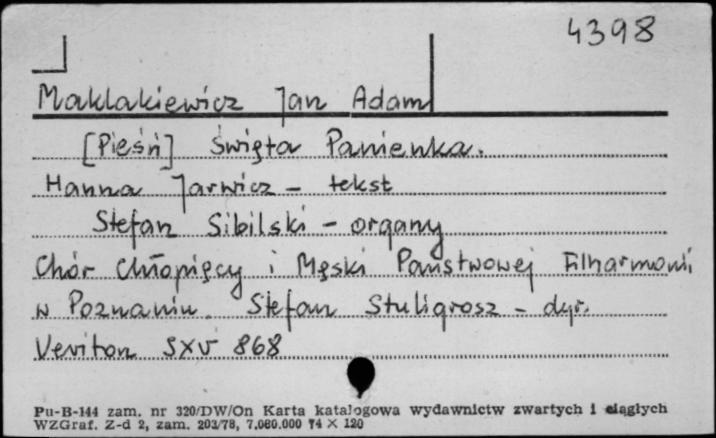 4398
Maklakiewicz Jan Adam
[Pieśń] Święta Panienka.
Hanna Jarwicz - tekst
Stefan Sibilski - organy
Chór Chłopięcy i Męski Państwowej Filharmonii
w Poznaniu. Stefan Stuligrosz - dyr.
Veriton SXV 868
Pu-B-144 zam. nr 320/DW/On Karta katalogowa wydawnictw zwartych i ciągłych
WZGraf. Z-d 2, zam. 203/78, 7.080.000 74 X 120